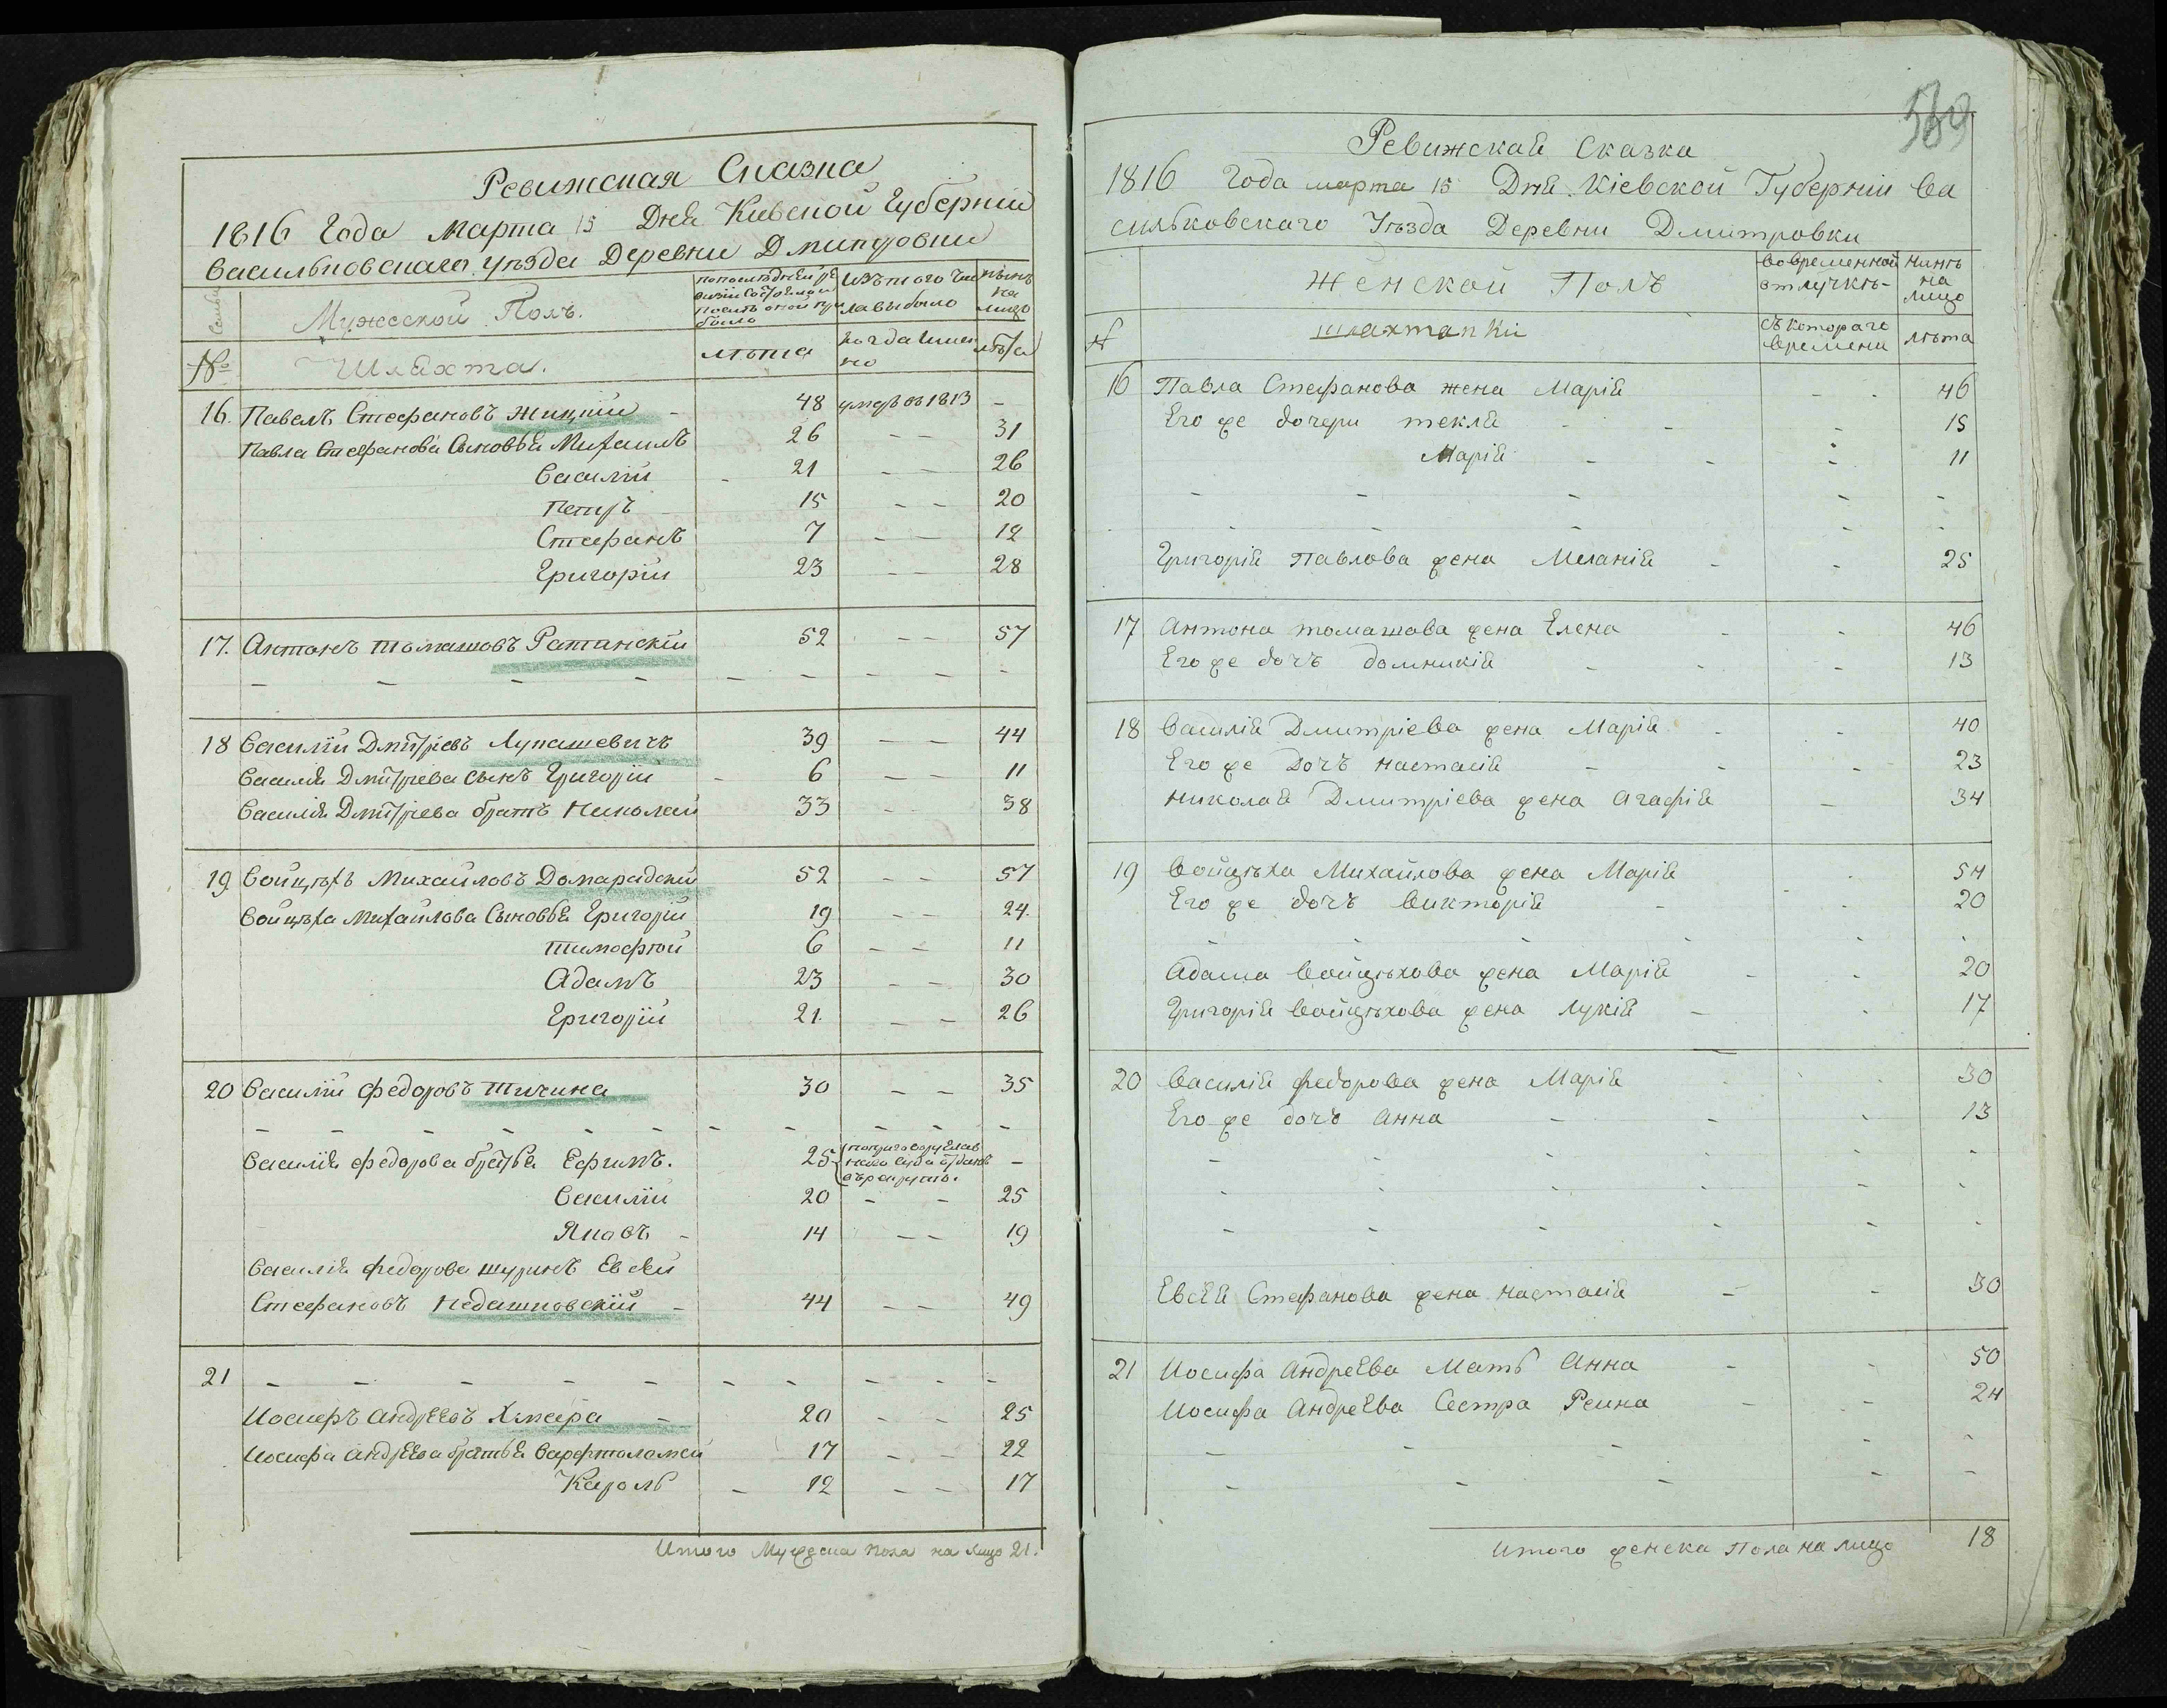 Ревижская Сказка
1816 Года Марта 15 Дня Киевской Губерніи
Васильковскаго уѣзда Деревни Дмитровки
Мужеской Полъ.
по последней ревизіи состояло и после оной прибыло
Изъ того числа выбыло
нынѣ на лицо
№ Шляхта. лѣта когда именно лѣта
16. Павелъ Стефановъ Жицкій - 48 умеръ въ 1813 -
Павла Стефанова Сыновья Михаилъ 26 - - 31
Василій - 21 - - 26
Петръ 15 - - 20
Стефанъ 7 - - 12
Григорій 23 - - 28
17. Антонъ Томашовъ Ратанскій 52 - - 57
- - - - - - - - -
18 Василій Дмитріевъ Лупашевичъ 39 - - 44
Василія Дмитріева сынъ Григорій - 6 - - 11
Василія Дмитріева братъ Николай 33 - 38
19 Войцѣхъ Михайловъ Домарадскій 52 - - 57
Войцѣха Михайлова Сыновья Григорій 19 - - 24.
Тимофѣй 6 - - 11
Адамъ 23 - - 30
Григорій 21. - - 26
20 Василій Федоровъ Тичина 30 - - 35
- - - - - - - - - - -
Василія Федорова братья Ефимъ. 25 -
Василій 20 - - 25
Яковъ - 14 - - 19
Василія Федорова шуринъ Евсей
Стефановъ Недашковскій - 44 - - 49
21 - - - - - - - - - -
Иосифъ Андреевъ Хмара - 20 - - 25
Иосифа Андреева братья Варфтоломей 17 - - 22
Кароль - 12 - - 17
Итого Мужеска пола на лицо 21.
Ревижская Сказка
1816 Года марта 15 Дня Кіевской Губерніи Ва
сильковскаго Уѣзда Деревни Дмитровки
Женской Полъ
во временной отлучкѣ-
нинѣ на лицо
№ шляхтапки съ котораго времени лѣта
16 Павла Стефанова жена Марія - - 46
Его же дочери текля - - - 15
Марія - - - 11
- - - - -
- - - - -
Григорія Павлова жена Меланія - - 25
17 Антона томашова жена Елена - - 46
Его же дочъ домникія - - - 13
18 Василія Дмитріева жена Марія - - 40
Его же Дочъ настасія - - - 23
Николая Дмитріева жена Агафія - 34
19 Войцѣха Михайлова жена Марія - 54
Его же дочъ Викторія - - - 20
- - - - - -
Адама Войцѣхова жена Марія - - 20
Григорія Войцѣхова жена Лукія - - 17
20 Василія Федорова жена Марія - - 30
Его же дочъ Анна - - - 13
- - - - - -
- - - - - -
- - - - - -
Евсея Стефанова жена настасія - - 30
21 Иосифа Андреева Мать Анна - - 50
Иосифа Андреева Сестра Реина - - 24
- - - - -
- - - - -
Итого женска Пола на лицо 18